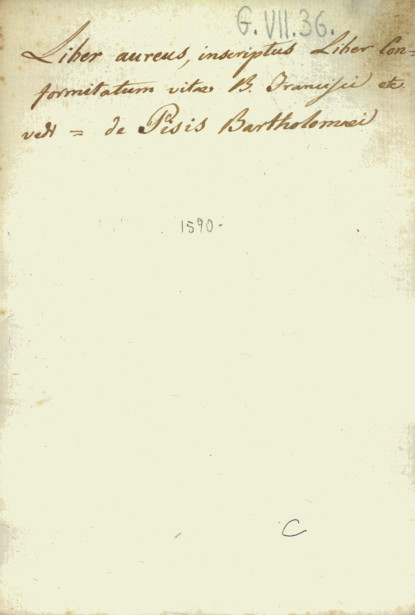 G.VII.36.
Liber aureus, inscriptus Liber Con=
formitatum vitæ B. Francisci etc.
ved = de Pisis Bartholomæi
1590-
C